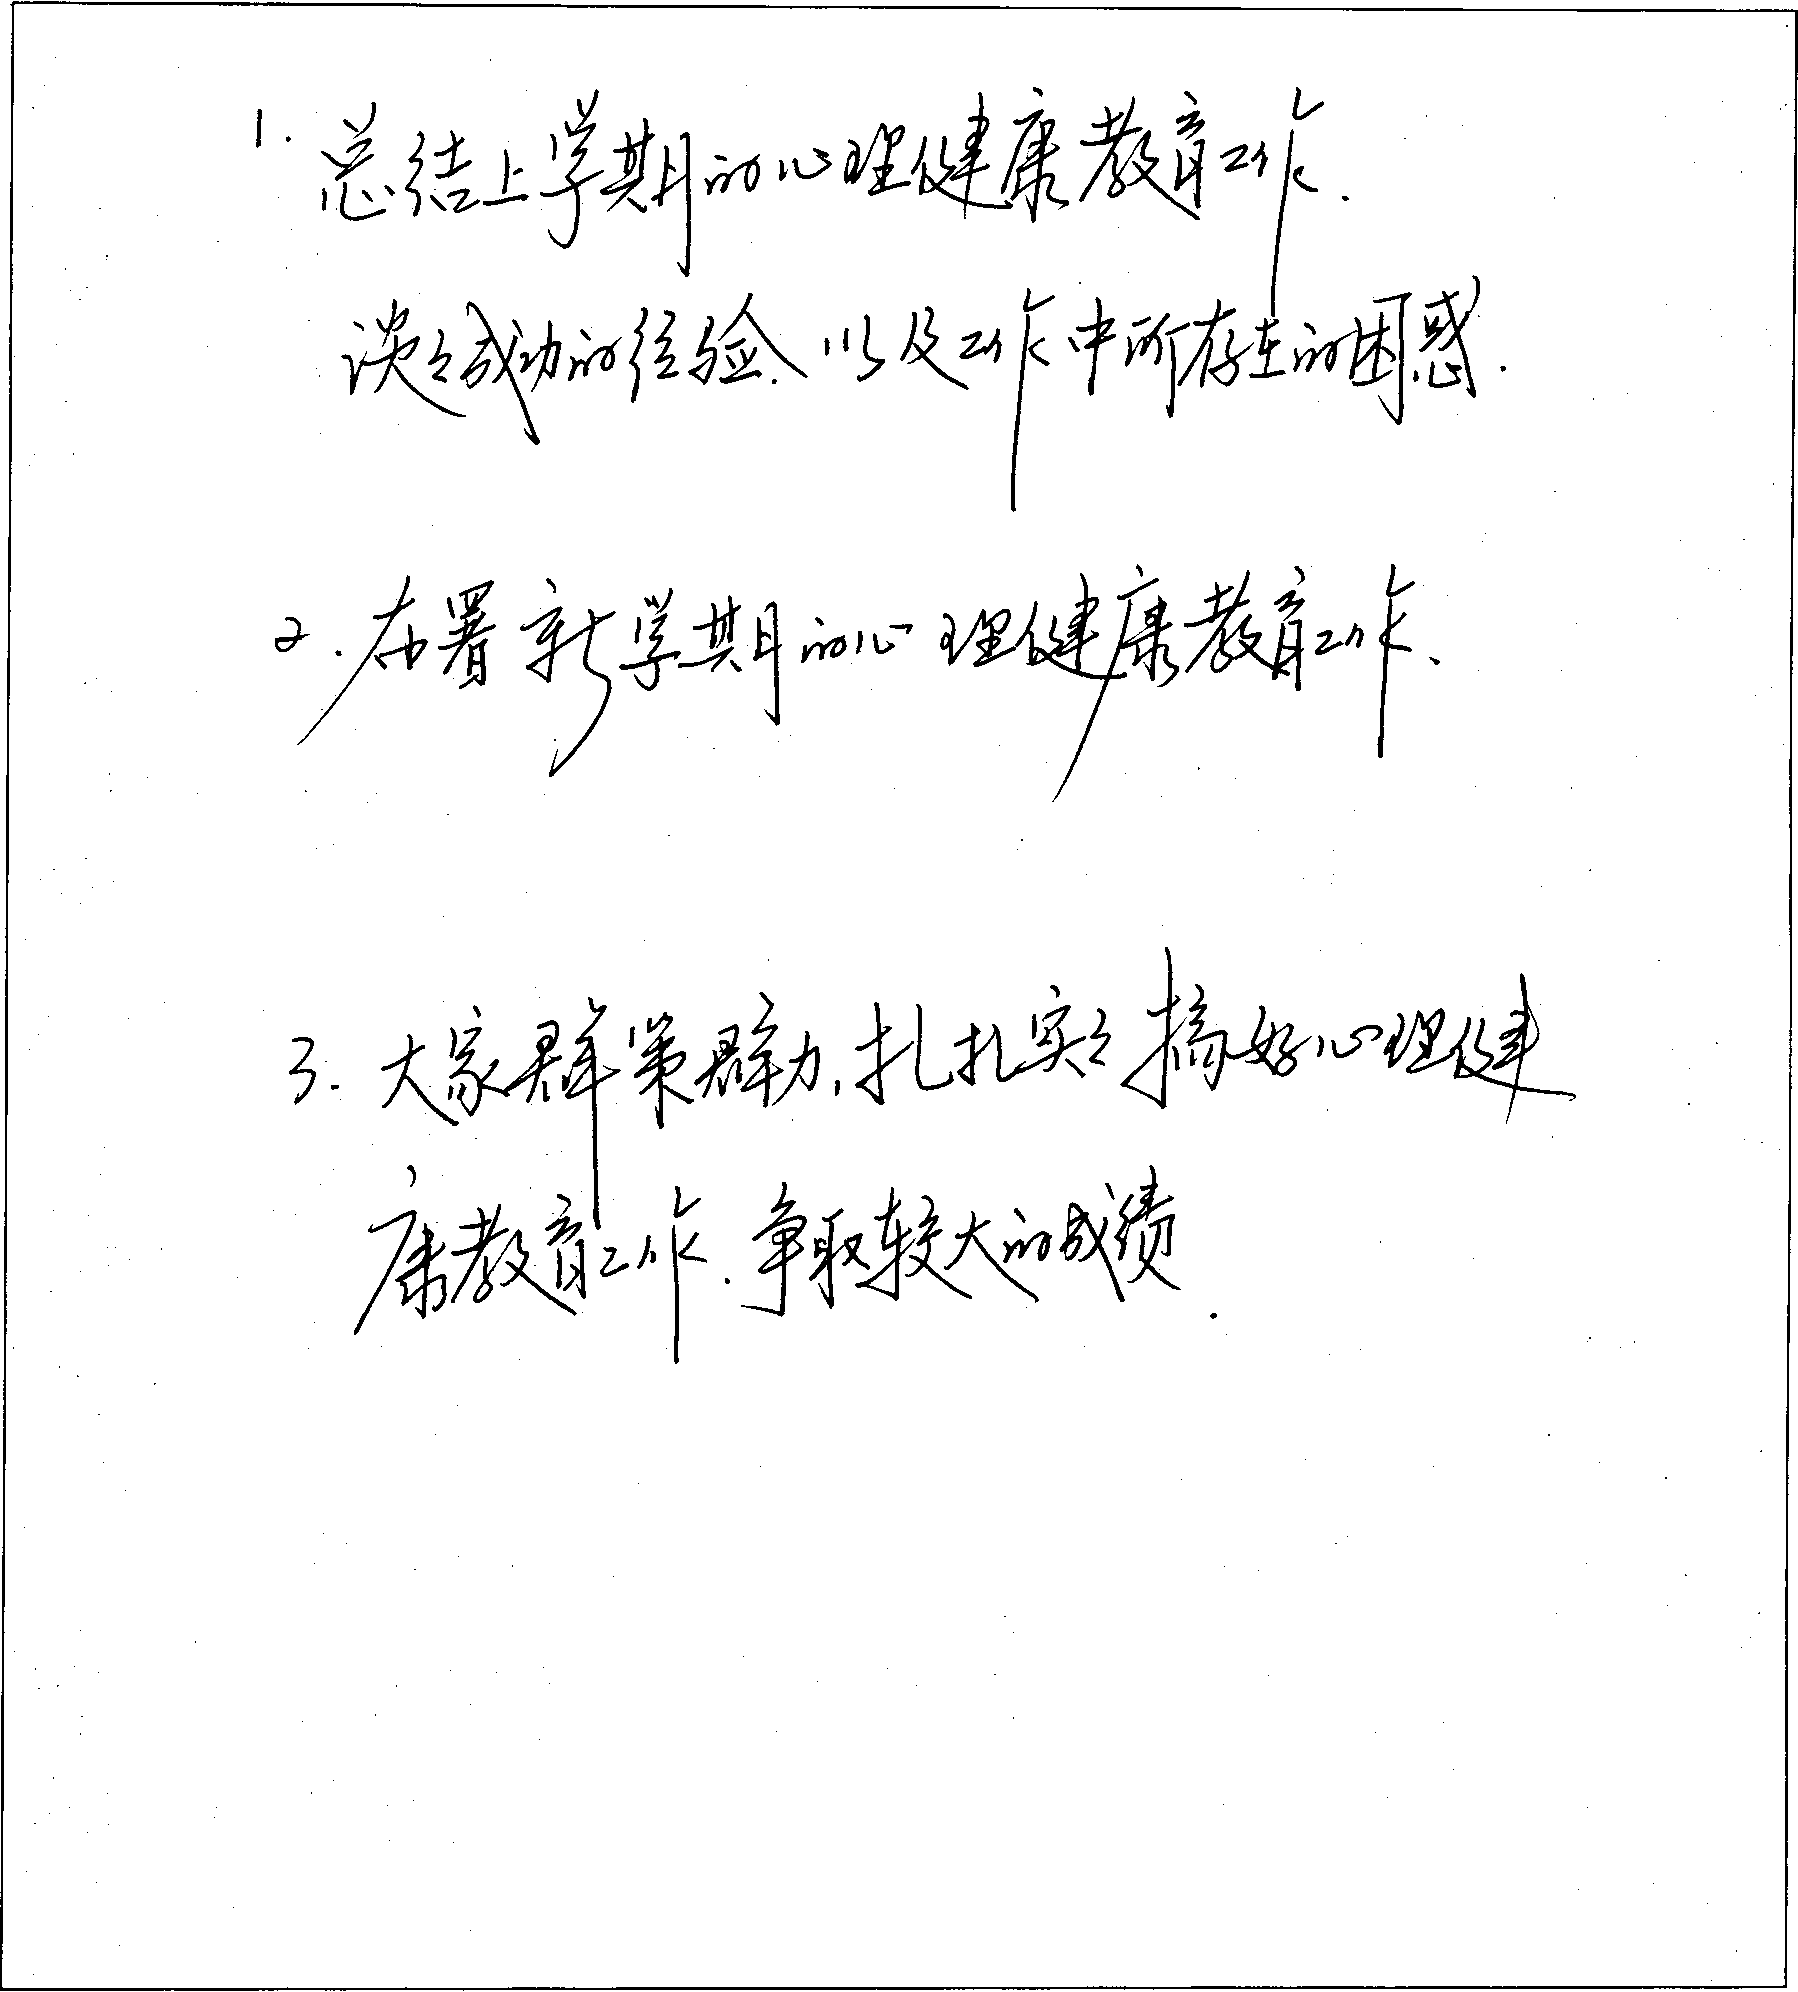 1. 总结上学期的心理健康教育工作.
谈谈成功的经验、以及工作中所存在的困惑.
2. 布署新学期的心理健康教育工作、
3. 大家群策群力,扎扎实实搞好心理健
康教育工作.争取较大的成绩.